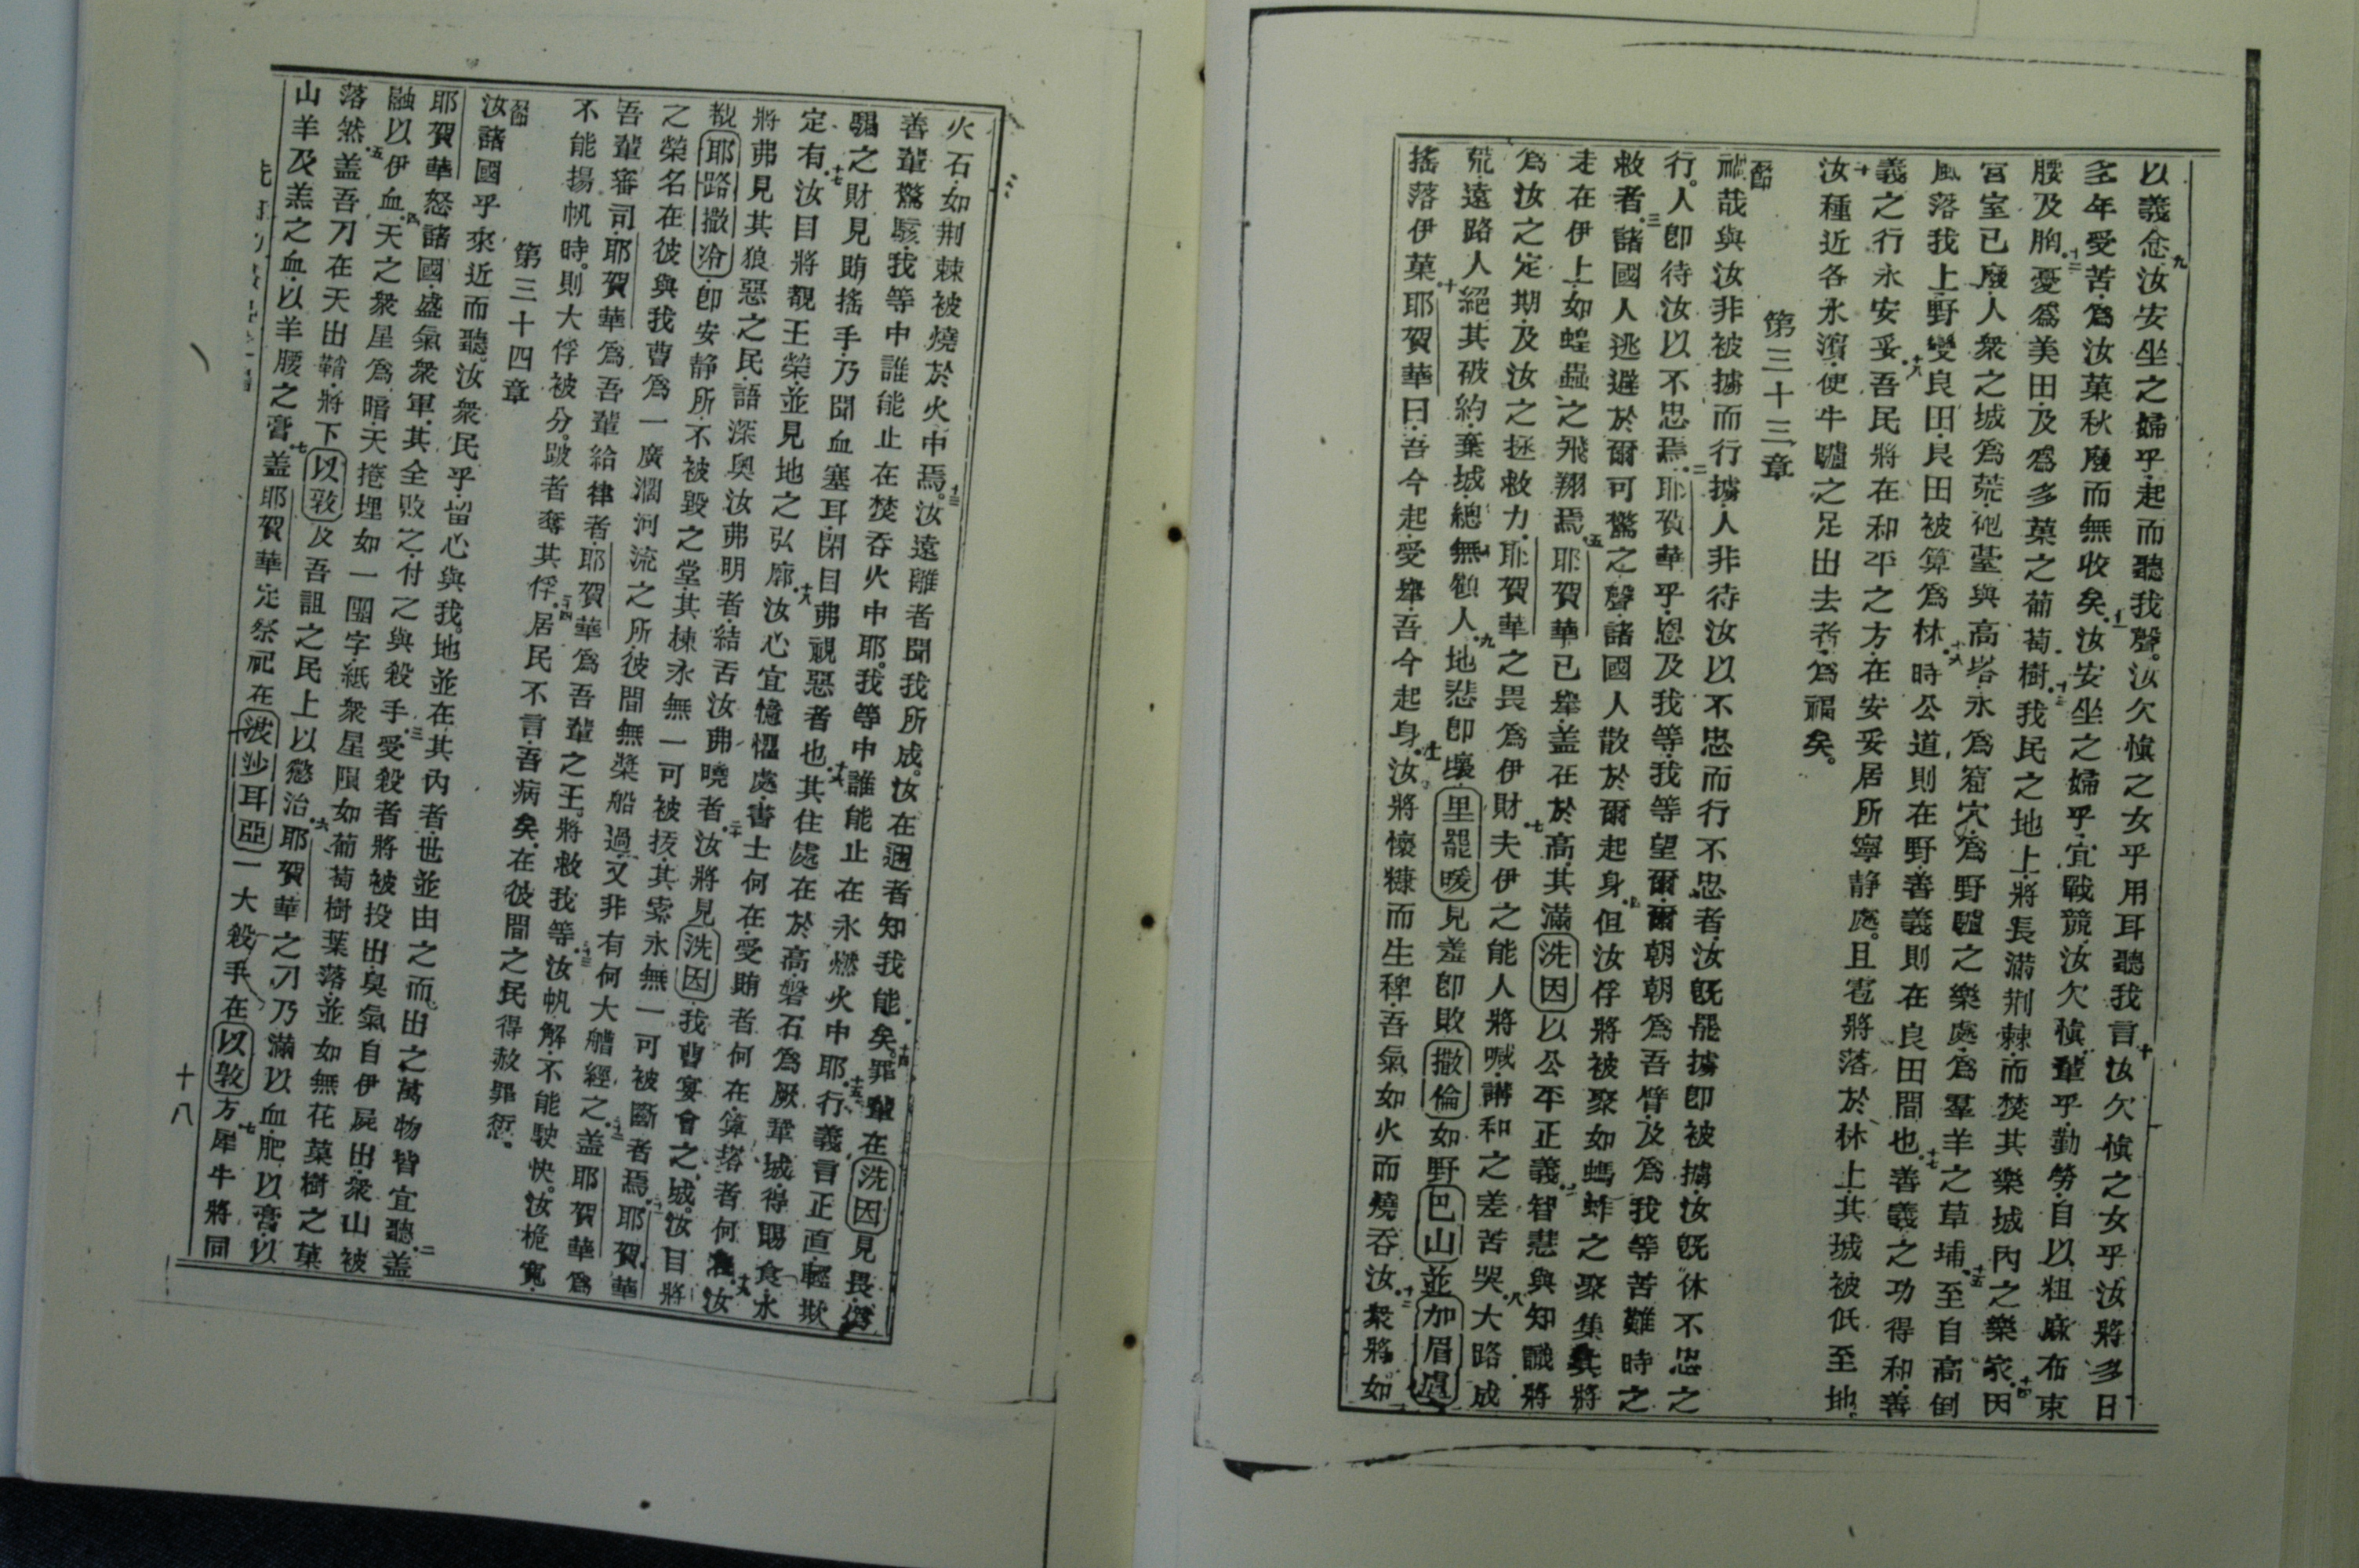 以義念九汝安坐之婦乎起而聽我聲。汝欠愼之女乎用耳聽我言十汝欠愼之女乎汝將多日
多年受苦爲汝菓秋廢而無收矣十一汝安坐之婦乎宜戰競汝欠愼輩乎勤勞自以粗麻布束
腰及胸十二憂爲美田及爲多菓之葡萄樹十三我民之地上將長滿荆棘而焚其樂城內之樂家十四因
宮室已廢人衆之城爲荒砲臺與高塔永爲窟穴爲野驢之樂處爲羣羊之草埔十五至自高倒
風落我上野變良田良田被算爲林十六時公道則在野善義則在良田間也十七善義之功得和善
義之行永安妥十八吾民將在和平之方在安妥居所寧静處。且雹將落於林上其城被低至地。
二十汝種近各水濱使牛驢之足出去者爲福矣。
第三十三章
一節禍哉與汝非被擄而行擄人非待汝以不忠而行不忠者汝旣罷擄卽被擄汝旣休不忠之
行。人卽待汝以不忠焉二耶賀華乎恩及我等我等望爾爾朝朝爲吾臂及爲我等苦難時之
救者三諸國人逃避於爾可驚之聲諸國人散於爾起身四但汝俘將被聚如螞蚱之聚集其將
走在伊上如蝗蟲之飛翔焉五耶賀華已舉盖在於高其滿洗因以公平正義六智慧與知識將
爲汝之定期及汝之拯救力耶賀華之畏爲伊財七夫伊之能人將喊講和之差苦哭八大路成
荒遠路人絕其破約棄城總無顧人九地悲卽壞里罷暖見羞卽敗撒倫如野巴山並加眉遏
搖落伊菓十耶賀華曰吾今起受舉吾今起身十一汝將懷糠而生稗吾氣如火而燒吞汝十二衆將如
火石如荆棘被燒於火中焉。十三汝遠離者聞我所成。汝在邇者知我能矣十四罪輩在洗因見畏僞
善輩驚駭我等中誰能止在焚吞火中耶。我等中誰能止在永燃火中耶十五行義言正直輕欺
騙之財見賄搖手乃聞血塞耳閉目弗視惡者也十六其住處在於高磐石爲厥鞏城得賜食水
定有十七汝目將覩王榮並見地之弘廓十八汝心宜憶懼處書士何在受賄者何在算塔者何在十九汝
將弗見其狼惡之民語深奧汝弗明者結舌汝弗曉者二十汝將見洗因我曹宴會之城汝目將
覩耶路撒冷卽安静所不被毀之堂其棟永無一可被拔其索永無一可被斷者焉二十一耶賀華
之榮名在彼與我曹爲一廣濶河流之所彼間無槳船過又非有何大艚經之二十二盖耶賀華爲
吾輩審司耶賀華爲吾輩給律者耶賀華爲吾輩之王。將救我等二十三汝帆解不能駛快汝桅寬
不能揚帆時。則大俘被分。跛者奪其俘二十四居民不言吾病矣在彼間之民得赦罪愆。
第三十四章
一節汝諸國乎來近而聽。汝衆民乎留心與我。地並在其內者世並由之而出之萬物皆宜聽二盖
耶賀華怒諸國盛氣衆軍其全敗之付之與殺手三受殺者將被投出臭氣自伊屍出衆山被
融以伊血四天之衆星爲暗天捲埋如一團字紙衆星隕如葡萄樹葉落並如無花菓樹之菓
落然五盖吾刀在天出鞘將下以敦及吾詛之民上以懲治六耶賀華之刀乃滿以血肥以膏以
山羊及羔之血以羊腰之膏盖耶賀華定祭祀在波沙耳亞一大殺乎在以敦方七犀牛將同
十八